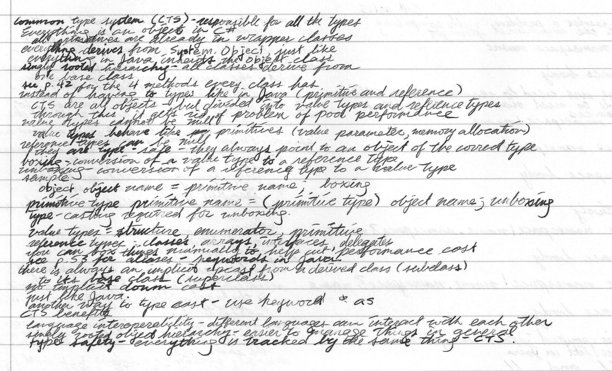 common type system (CTS) - responsible for all the types
Everything is an object in C#
all primitives are already in wrapper classes
everything derives from System.Object, just like
everything in Java inherits the object class
singly rooted hierarchy - all classes derive from
one base class
see p. 42 for the 4 methods every class has
instead of having two types like in Java (primitive and reference)
CTS are all objects - but divided into value types and reference types
through this, gets rid of problem of poor performance
value types cannot be null
value types behave like primitives (value parameter, memory allocation)
reference types can be null
they are type-safe - they always point to an object of the correct type
boxing - conversion of a value type to a reference type
unboxing - conversion of a reference type to a value type
sample
object object name = primitive name; boxing
primitive type primitive name = (primitive type) object name; unboxing
type-casting required for unboxing.
value types: structure, enumerator, primitive
reference types: classes, arrays, interfaces, delegates
you can box things manually to help cut performance cost
see p. 53 for aliases - keywords in
there is always an implicit upcast from a derived class (subclass)
to its base class (superclass)
no implicit down cast
just like Java.
another way to type cast - use keyword as
CTS benefits
language interoperability - different languages can interact with each other
singly rooted object hierarchy - easier to manage things in general
type safety - everything is tracked by the same thing - CTS.